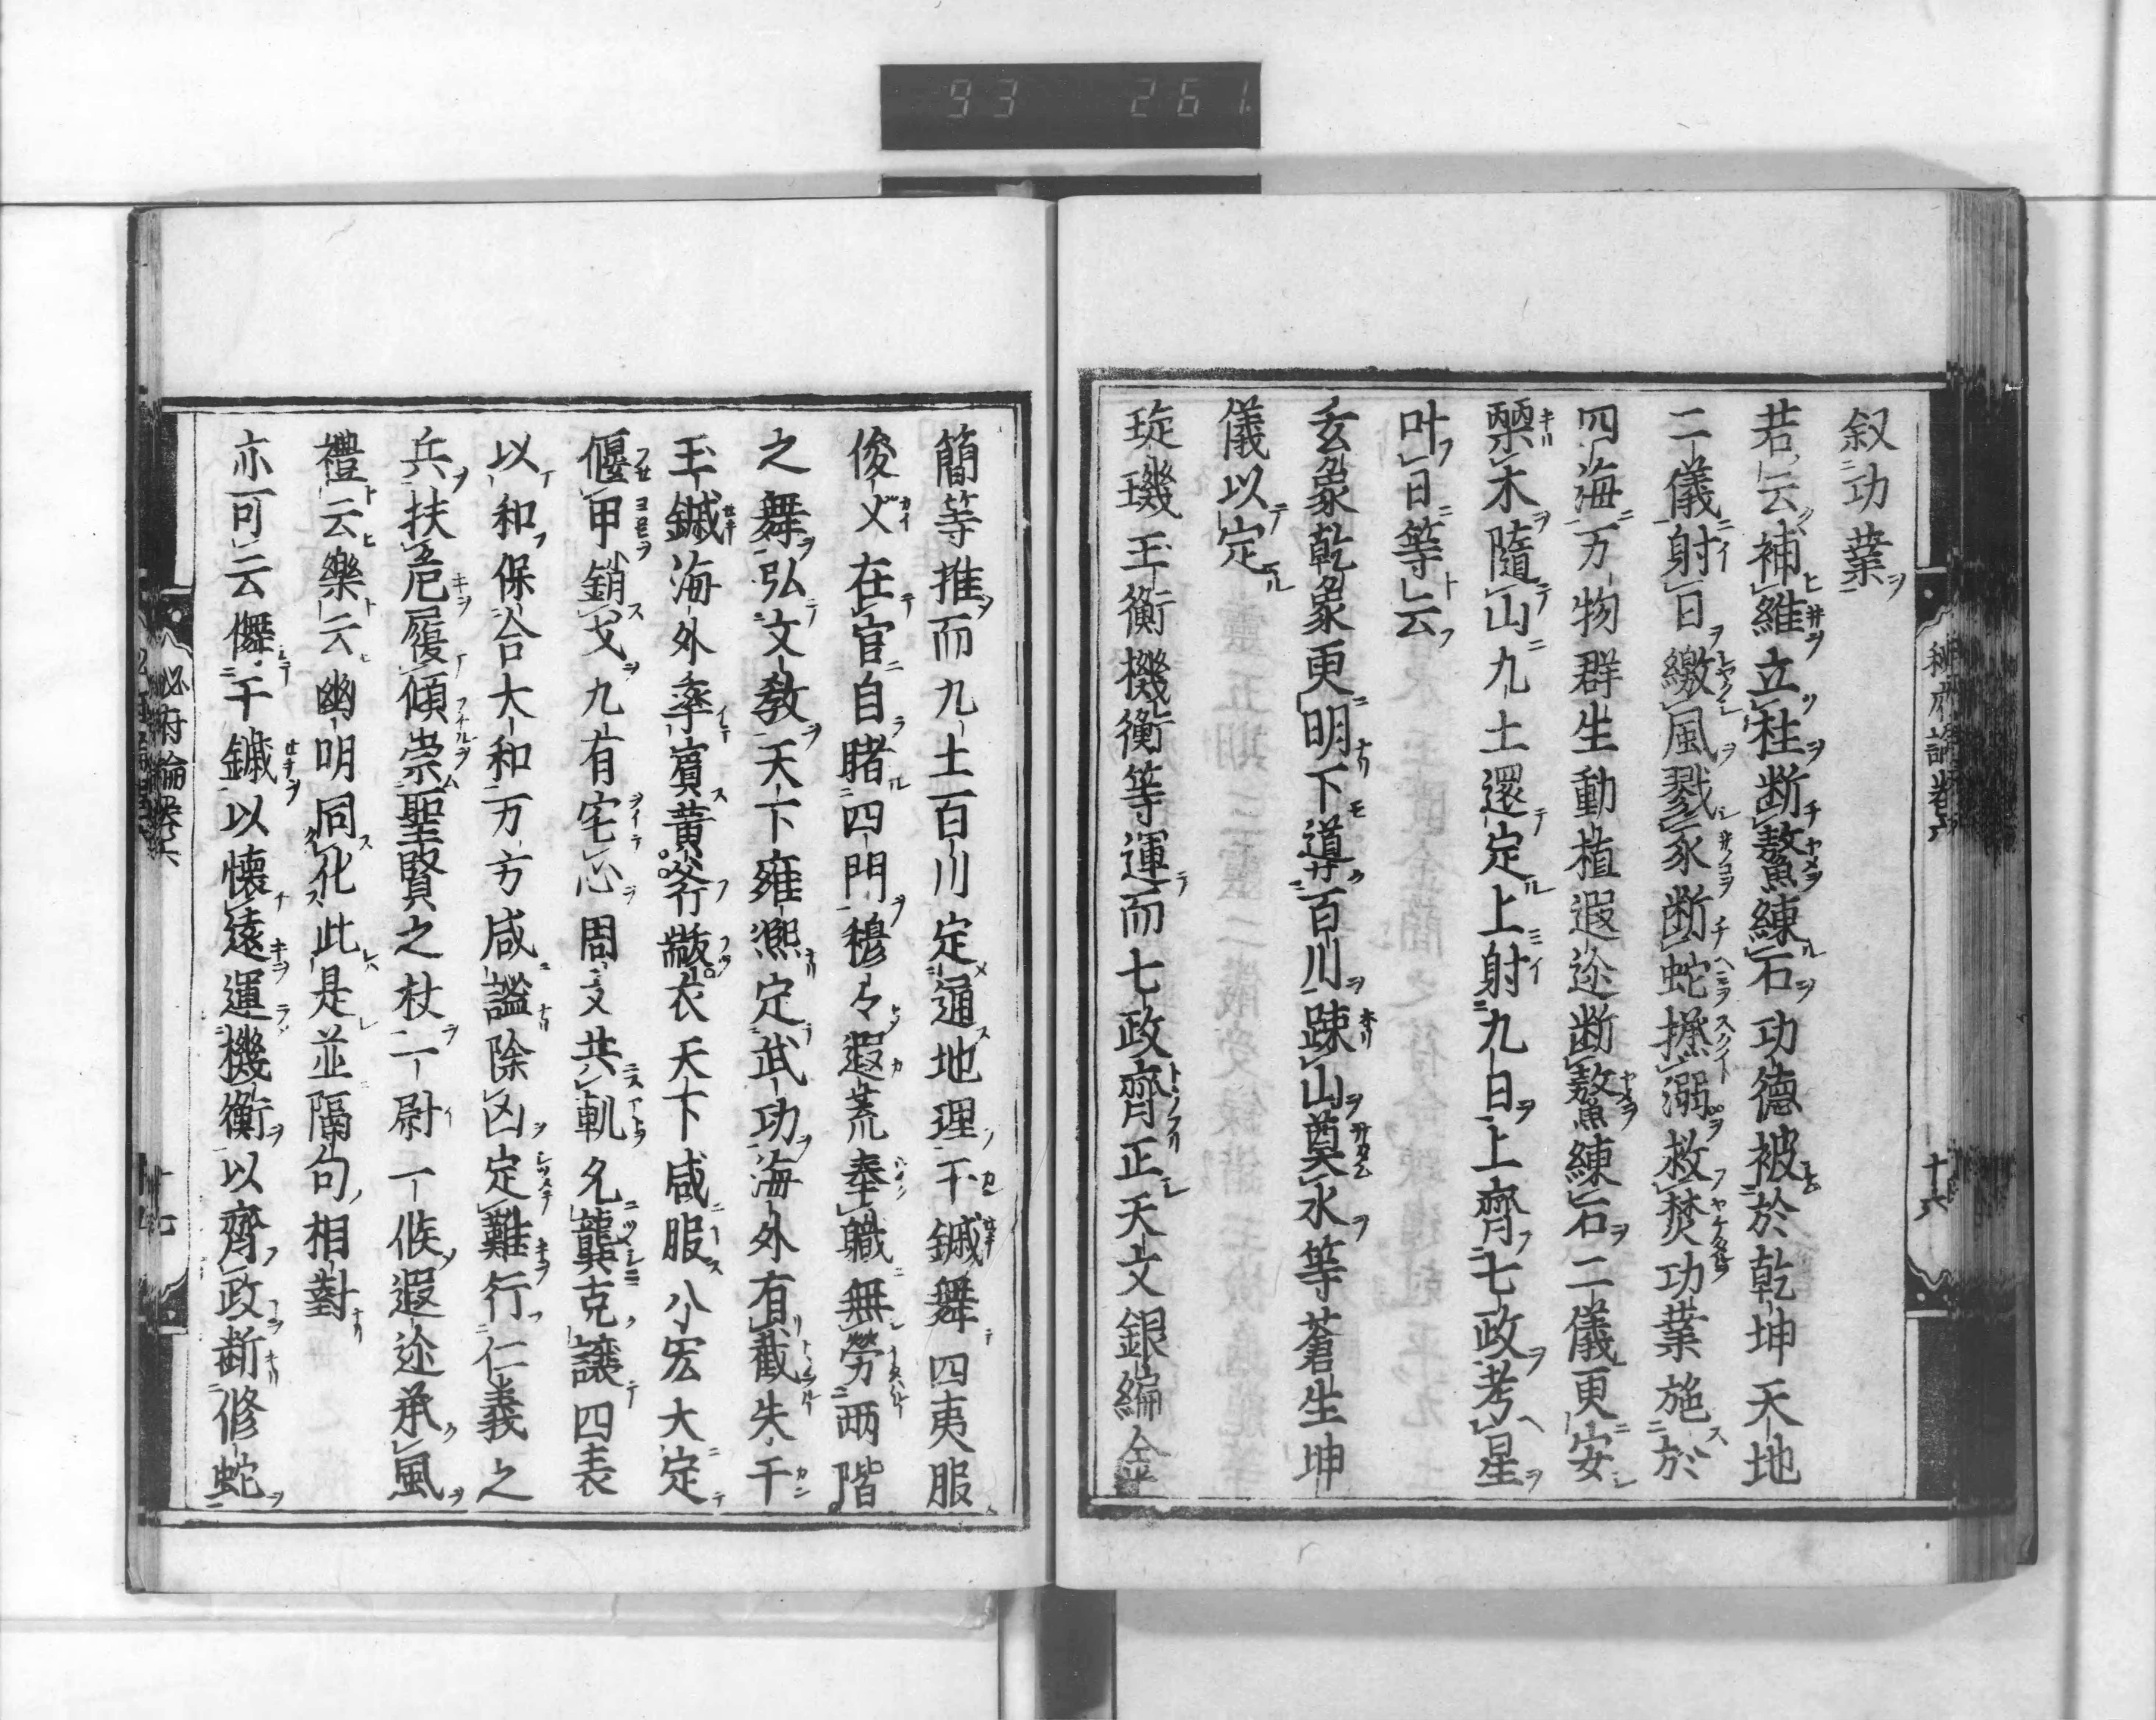 93 261
叙功業
若云補維立柱断鼇練石功德被於乾坤天地
二儀射日繳風戮豕断蛇拯溺救焚功業施於
四海万物群生動植遐迩断鼇練石二儀更安
槩木隨山九土還定上射九日上齊七政考星
叶日等云
玄象乾象更明下導百川踈山奠水等蒼生坤
儀以定
琁璣玉衡機衡等運而七政齊正天文銀編金
簡等推而九土百川定通地理干鏚舞四夷服
俊乂在官自睹四門穆々遐荒奉職無勞兩階
之舞弘文敎天下雍熈定武功海外有截朱干
玉鏚海外率賓黄裳衣天下咸服八宏大定
偃甲銷戈九有宅心周文共軌允龔克讓四表
以和保合大和万方咸謐除凶定難行仁義之
兵扶危履傾崇聖賢之杖一尉一候遐迩承風
禮云樂云幽明同化此是並隔句相對
亦可云儛干鏚以懐遠運機衡以齊政斬修蛇
秘府論卷六
十六
十七